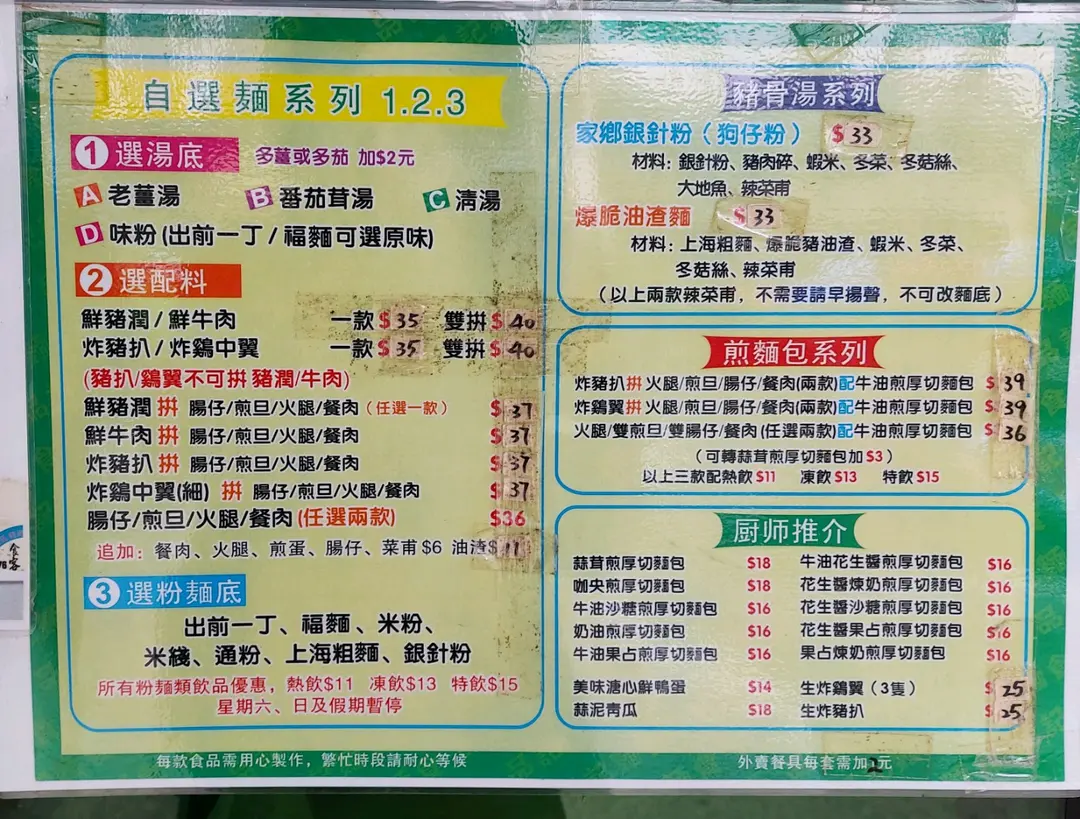 自選麵系列 1.2.3
1 選湯底 多薑或多茄 加$2元
A 老薑湯 B 番茄茸湯 C 清湯
D 味粉(出前一丁/福麵可選原味)
2 選配料
鮮豬潤/鮮牛肉 一款$35 雙拼$40
炸豬扒/炸鷄中翼 一款$35 雙拼$40
(豬扒/鷄翼不可拼 豬潤/牛肉)
鮮豬潤 拼 腸仔/煎旦/火腿/餐肉(任選一款) $37
鮮牛肉 拼 腸仔/煎旦/火腿/餐肉 $37
炸豬扒 拼 腸仔/煎旦/火腿/餐肉 $37
炸鷄中翼(細) 拼 腸仔/煎旦/火腿/餐肉 $37
腸仔/煎旦/火腿/餐肉(任選兩款) $36
追加: 餐肉、火腿、煎蛋、腸仔、菜甫 $6 油渣$11
3 選粉麵底
出前一丁、福麵、米粉、
米綫、通粉、上海粗麵、銀針粉
所有粉麵類飲品優惠,熱飲$11 凍飲$13 特飲$15
星期六、日及假期暫停
豬骨湯系列
家鄉銀針粉(狗仔粉) $33
材料: 銀針粉、豬肉碎、蝦米、冬菜、冬菇絲、
大地魚、辣菜甫
爆脆油渣麵 $33
材料: 上海粗麵、爆脆豬油渣、蝦米、冬菜、
冬菇絲、辣菜甫
(以上兩款辣菜甫,不需要請早揚聲,不可改麵底)
煎麵包系列
炸豬扒拼火腿/煎旦/腸仔/餐肉(兩款)配牛油煎厚切麵包 $39
炸鷄翼拼火腿/煎旦/腸仔/餐肉(兩款)配牛油煎厚切麵包 $39
火腿/雙煎旦/雙腸仔/餐肉(任選兩款)配牛油煎厚切麵包 $36
(可轉蒜茸煎厚切麵包加$3)
以上三款配熱飲$11 凍飲$13 特飲$15
厨师推介
蒜茸煎厚切麵包 $18 牛油花生醬煎厚切麵包 $16
咖央煎厚切麵包 $18 花生醬煉奶煎厚切麵包 $16
牛油沙糖煎厚切麵包 $16 花生醬沙糖煎厚切麵包 $16
奶油煎厚切麵包 $16 花生醬果占煎厚切麵包 $16
牛油果占煎厚切麵包 $16 果占煉奶煎厚切麵包 $16
美味溏心鮮鴨蛋 $14 生炸鷄翼(3隻) $25
蒜泥青瓜 $18 生炸豬扒 $25
每款食品需用心製作,繁忙時段請耐心等候
外賣餐具每套需加2元